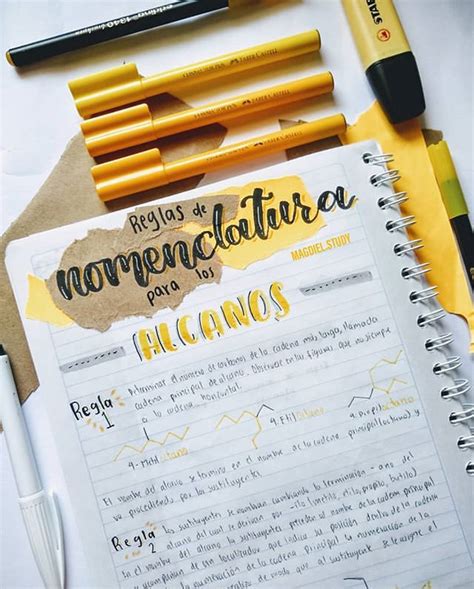 STABILO
Reglas de
nomenclatura
para los
MAGDIEL.STUDY
ALCANOS
Regla
1
Determinar el número de carbonos de la cadena más larga, llamada
cadena principal del alcano. Observar en las figuras que no siempre
es la cadena horizontal.
4-Etil octano
4-Propil
El nombre del alcano se termina en el nombre de la cadena principal (octano) y
va precedido por los sustituyentes
Regla
2
Los sustituyentes se nombran cambiando la terminación -ano del
alcano del cual se derivan por -ilo (metilo, etilo, propilo, butilo)
el nombre del alcano, los sustituyentes preceden al nombre de la cadena principal
y se acompañan de un localizador que indica su posición dentro de la cadena
principal. La numeración de la
se realiza de modo que al sustituyente se le asigne el